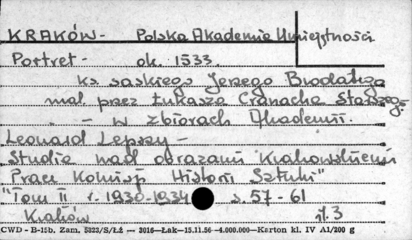 KRAKÓW - Polska Akademia Umiejętności
Portret - ok. 1533.
ks. saskiego Jerzego Brodatego
mal. przez Łukasza Cranacha Starszego
- w zbiorach Akademii.
Leonard Lepszy -
Studia nad obrazami Krakowskiemi
Prace Komisji Historii Sztuki"
"Tom II r. 1930-1934 s. 57-61
Kraków il. 3
CWD - B-15b. Zam. 5323/S/ŁŻ — 3016—Łak—15.11.56 -4.000.000—Karton kl. IV A1/200 g